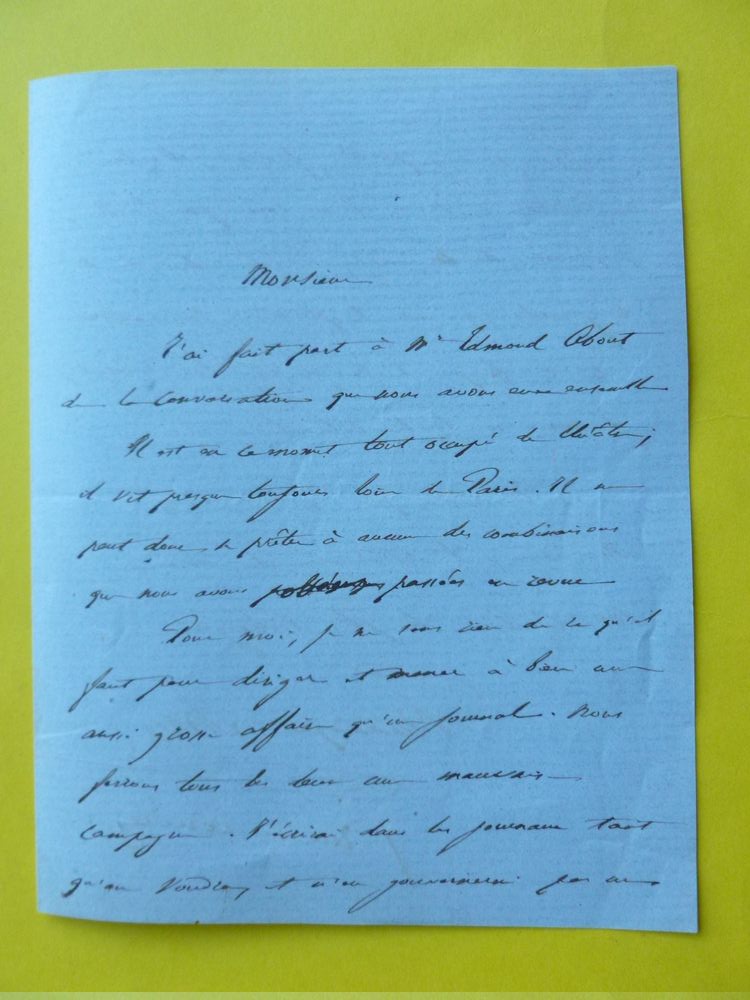 Monsieur
J'ai fait part à Mr Edmond About
de la conversation que nous avons eue ensemble
Il est en ce moment tout occupé de théâtre;
il vit presque toujours loin de Paris. Il ne
peut donc se prêter à aucune des combinaisons
que nous avons passées en revue
Pour moi, je ne sais rien de ce qu'il
faut pour diriger et mener à bien une
aussi grosse affaire qu'un journal. Nous
ferions tous les deux une mauvaise
campagne. J'écrirai dans les journaux tant
qu'on voudra, et n'en gouvernerai pas un